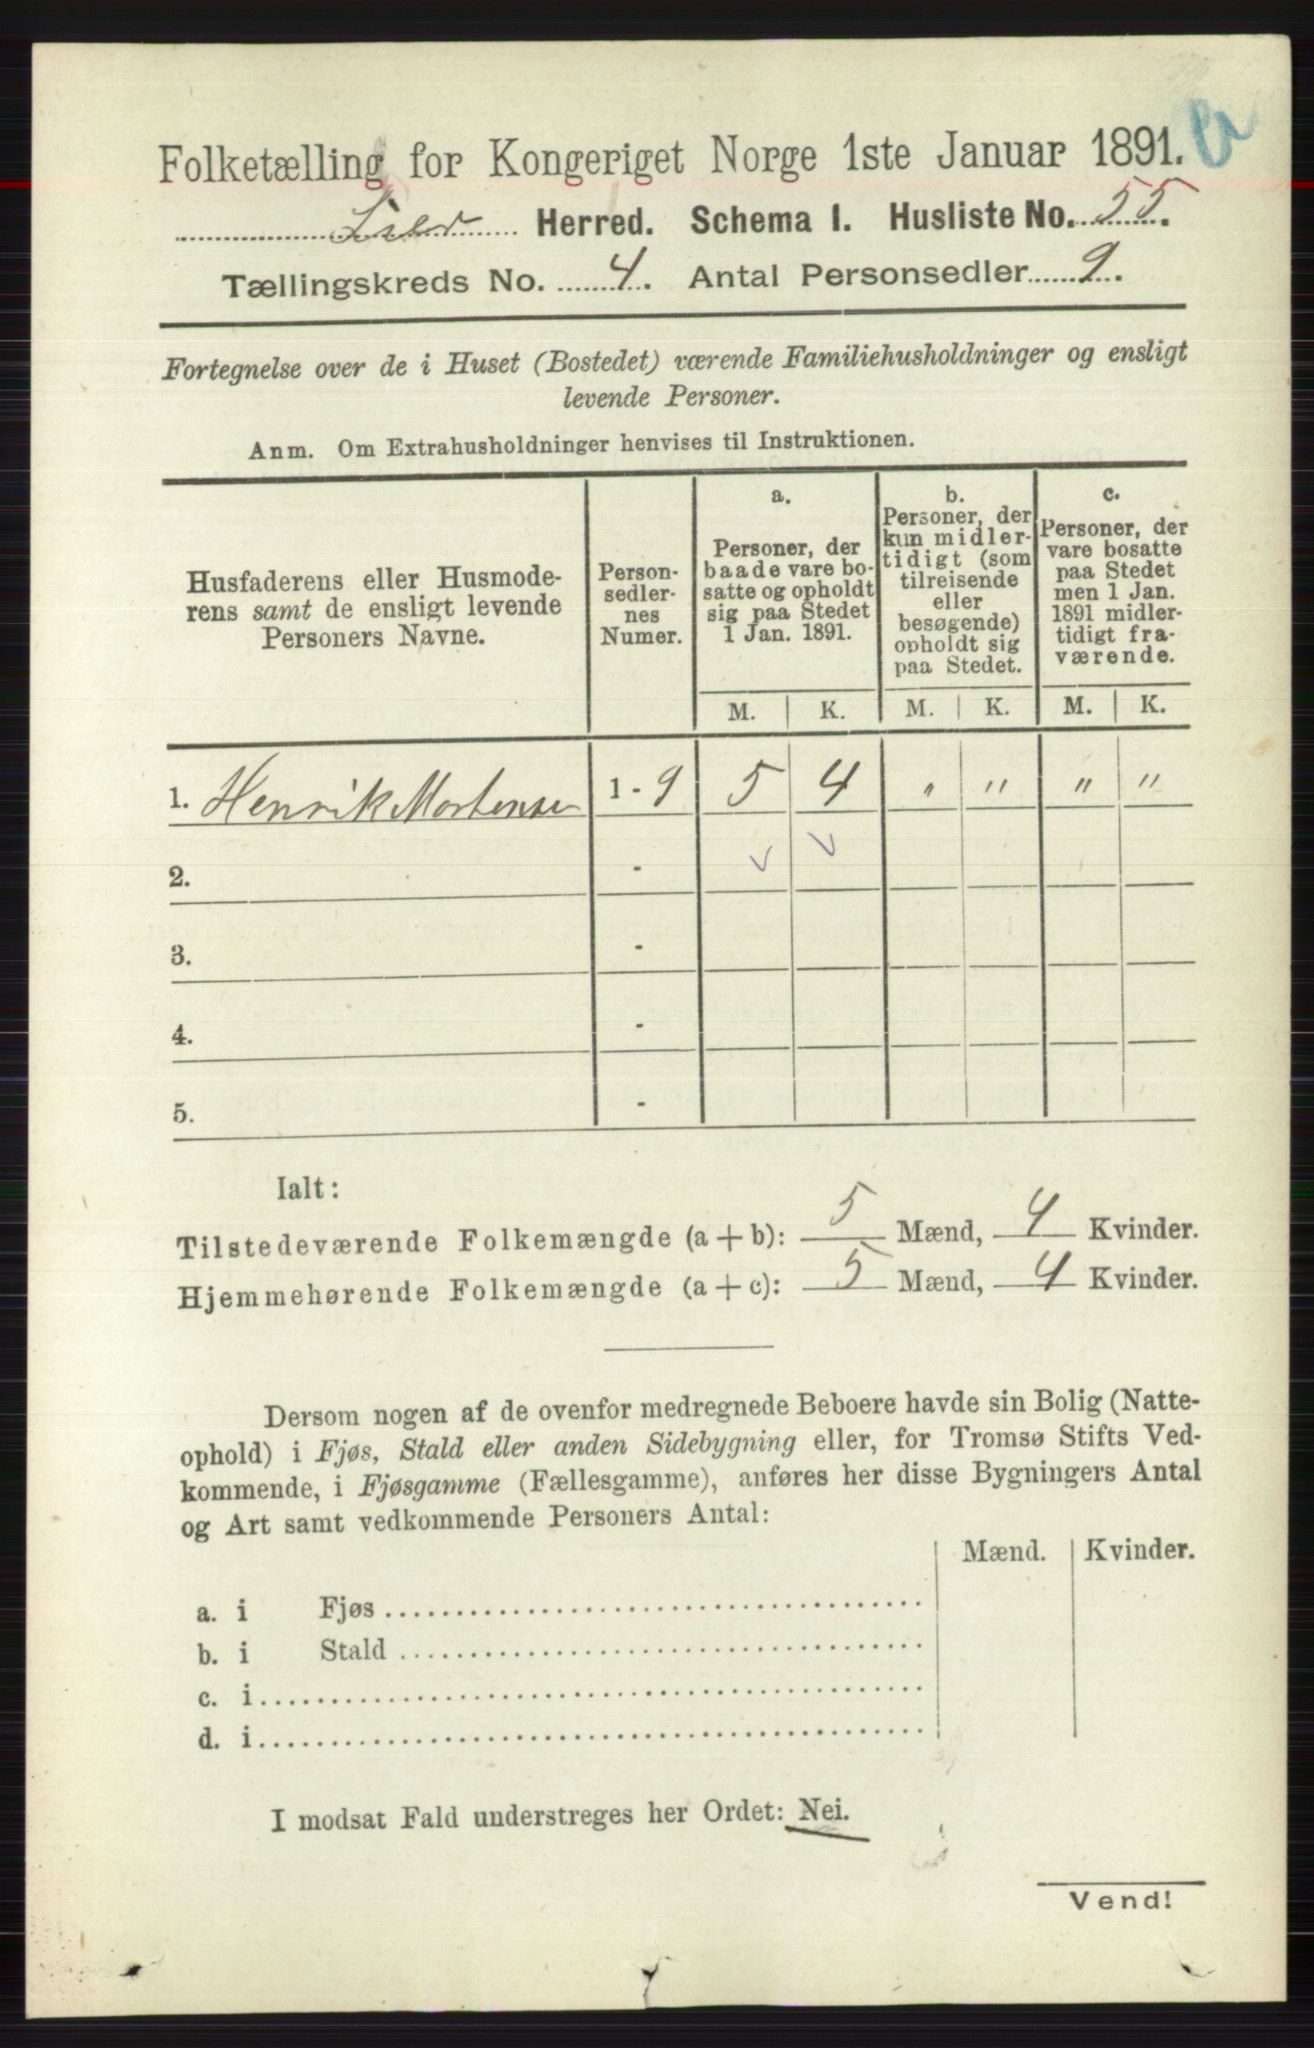 Folketælling for Kongeriget Norge 1ste Januar 1891.
Lier Herred. Schema I. Husliste No. 55.
Tællingskreds No. 4. Antal Personsedler 9.
Fortegnelse over de i Huset (Bostedet) værende Familiehusholdninger og ensligt
levende Personer.
Anm. Om Extrahusholdninger henvises til Instruktionen.
Husfaderens eller Husmode-
rens samt de ensligt levende
Personers Navne.
Person-
sedler-
nes
Numer.
a.
Personer, der
baade vare bo-
satte og opholdt
sig paa Stedet
1 Jan. 1891.
b.
Personer, der
kun midler-
tidigt (som
tilreisende
eller
besøgende)
opholdt sig
paa Stedet.
c.
Personer, der
vare bosatte
paa Stedet
men 1 Jan.
1891 midler-
tidigt fra-
værende.
M. K. M. K. M. K.
1. Henrik Mortensen 1-9 5 4 " " " "
2. -
3. -
4. -
5. -
Ialt:
Tilstedeværende Folkemængde (a + b): 5 Mænd, 4 Kvinder.
Hjemmehørende Folkemængde (a + c): 5 Mænd, 4 Kvinder.
Dersom nogen af de ovenfor medregnede Beboere havde sin Bolig (Natte-
ophold) i Fjøs, Stald eller anden Sidebygning eller, for Tromsø Stifts Ved-
kommende, i Fjøsgamme (Fællesgamme), anføres her disse Bygningers Antal
og Art samt vedkommende Personers Antal:
Mænd. Kvinder.
a. i Fjøs
b. i Stald
c. i
d. i
I modsat Fald understreges her Ordet: Nei.
Vend!